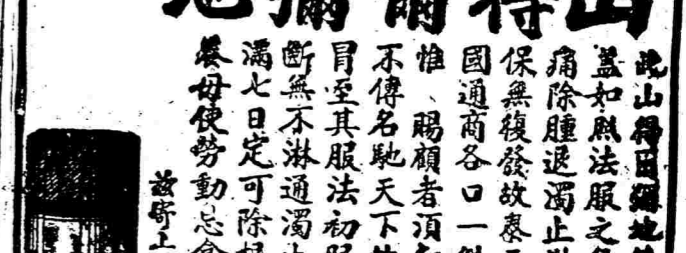 山得爾彌地
此山得爾彌地
蓋如照法服之
痛除腫退濁止
保無復發故泰
國通商各口一
惟 賜顧者須
不傳名馳天下
冒至其服法初服
斷無不淋通濁
滿七日定可除根
養毋使勞動忌食
茲寄上